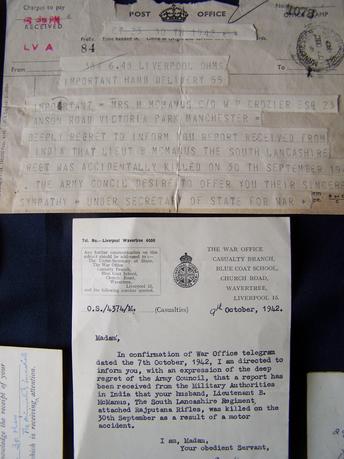 Charges to pay
POST OFFICE
RECEIVED
LV A
84
From
To
384 6.45 LIVERPOOL OHMS
IMPORTANT HAND DELIVERY 55
IMPORTANT = MRS M MCMANUS C/O W P CROZIER ESQ 23
ANSON ROAD VICTORIA PARK MANCHESTER =
DEEPLY REGRET TO INFORM YOU REPORT RECEIVED FROM
INDIA THAT LIEUT B MCMANUS THE SOUTH LANCASHIRE
REGT WAS ACCIDENTALLY KILLED ON 30 TH SEPTEMBER 194
. THE ARMY COUNCIL DESIRE TO OFFER YOU THEIR SINCERE
SYMPATHY = UNDER SECRETARY OF STATE FOR WAR +
Tel. No.- Liverpool Wavertree 4000
Any further communication on this
subject should be addressed to:-
The Under-Secretary of State,
The War Office,
Casualty Branch,
Blue Coat School,
Church Road,
Wavertree,
Liverpool 15,
and the following number quoted.
THE WAR OFFICE
CASUALTY BRANCH,
BLUE COAT SCHOOL,
CHURCH ROAD,
WAVERTREE,
LIVERPOOL 15.
O.S./4374/M. (Casualties)
9th October, 1942.
Madam,
In confirmation of War Office telegram
dated the 7th October, 1942, I am directed to
inform you, with an expression of the deep
regret of the Army Council, that a report has
been received from the Military Authorities
in India that your husband, Lieutenant B.
McManus, The South Lancashire Regiment,
attached Rajputana Rifles, was killed on the
30th September as a result of a motor
accident.
I am, Madam,
Your obedient Servant,
the receipt of your
which is receiving attention.